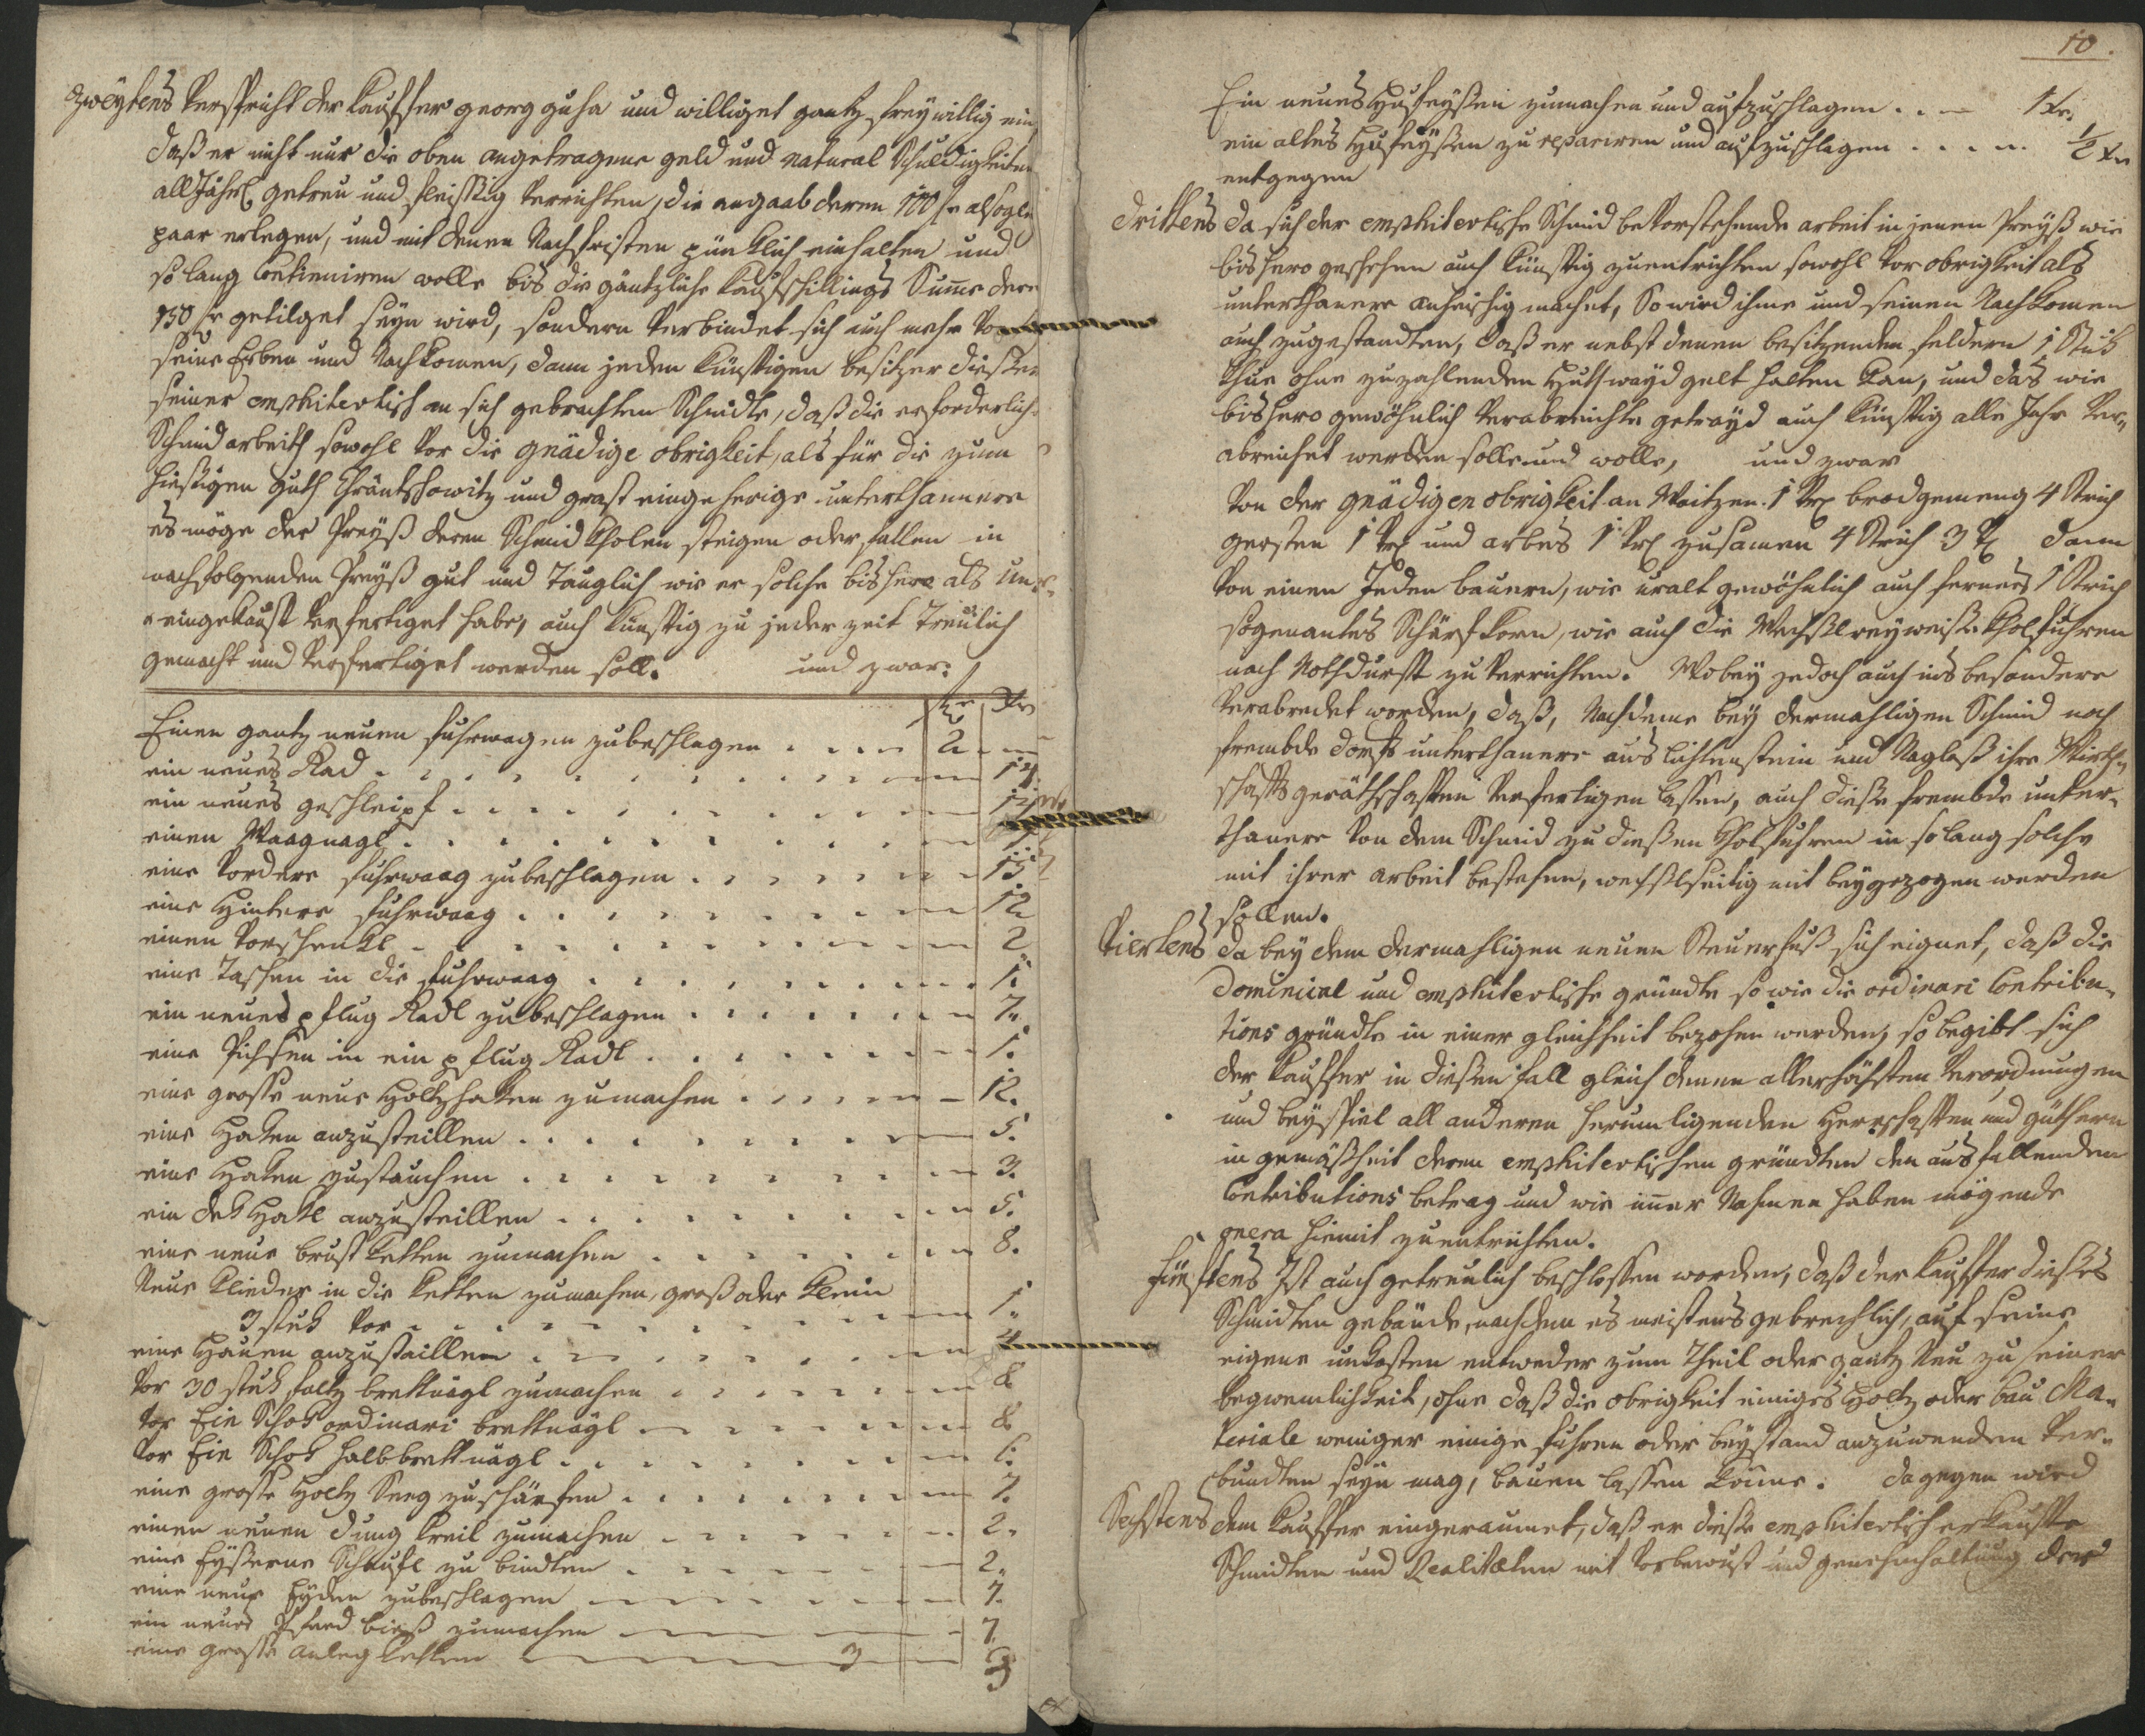 zweytens Verspricht der Kauffer georg guha und williget gantz freywillig ein
daß er nicht nur die oben angetragene geld und natural Schuldigkeiten
alljährl. getreu und fleissig verrichten, die angaab deren 100 fr alsogl
paar erlegen, und mit denen Nachfristen pünktlich einhalten und
so lang Continuiren wolle bis die gäntzliche Kaufschillings Sume deren
150 fr getilget seyn wird, sondern verbindet sich auch mehr vor
seine Erben und Nachkomen, dann jeden künftigen besitzer dießer
seiner emphiteotisch an sich gebrachten Schmidte, daß die erforderliche
Schmid arbeith sowohl vor die gnädige obrigkeit, als für die zum
hießigen guth und eingeherige unterthannere
es möge der Preyß deren Schmid Kholen steigen oder fallen in
nachfolgenden Preyß gut und Tauglich wie er solche bishero als un-
eingekauft verfertiget habe, auch künftig zu jeder zeit Treulich
gemacht und verfertiget werden soll. und zwar:
fr xr
Einen gantz neuen fuhrwagen zubeschlagen . . . . 2 . —
ein neues Rad . . . . . . . . 14.
ein neues geschleipf . . . . . . . . 12
einen Waagnagl . . . . . . . .
eine vordere fuhrwaag zubeschlagen . . . . . . 15
eine Hintere fuhrwaag . . . . . . . . 12
einen Vorschenkl . . . . . . . . 2
eine Taschen in die fuhrwaag . . . . . . . . 1.
ein neues pflug Radl zubeschlagen . . . . . . 7.
eine Pichsen in ein pflug Radl . . . . . . . 1.
eine grosse neue Holtzhaken zumachen . . . . . . 12.
eine Haken anzustellen . . . . . . . . 5.
eine Haken zustauchen . . . . . . . . 3.
ein Hakl anzustellen . . . . . . . . 5.
eine neue brust ketten zumachen . . . . . . . 8.
Neue klieder in die ketten zumachen, groß oder klein
3 stuk vor . . . . . . . . 1.
eine Hauen anzustallen . . . . . . . . 4
vor 30 stuk brettnägl zumachen . . . . . . 8
vor Ein Schok ordinari brettnägl . . . . . . 8
vor Ein Schok halbbrettnägl . . . . . . . 6.
eine grosse Holtz Seeg zuschärfen . . . . . . . 7.
einen neuen dung kreil zumachen . . . . . . 2.
eine Eyßerne Schaufl zu binden . . . . . . 2.
eine neue Eyden zubeschlagen . . . . . . 7.
ein neues Pferd bieß zumachen . . . . . . 7.
eine grosse anleg ketten 3
10.
Ein neues Hufeyßen zumachen und aufzuschlagen . . — 1 xr.
ein altes Hufeyßen zu repariren und aufzuschlagen . . . . ½ xr
entgegen
drittens da sich der emphiteotische Schmid bevorstehende arbeit in jenen Preyß wie
bishero geschehen auch künftig zuentrichten sowohl vor obrigkeit als
unterthanere anheischig machet, So wird ihme und seinen Nachkomen
auch zugestandten, daß er nebst denen besitzenden feldern 1 Stuk
Khue ohne zuzahlenden Huthwayd gelt halten kan, und das wie
bishero gewöhnlich verabreichte getrayd auch künftig alle Jahr ver-
abreichet werden solle und wolle, und zwar
von der gnädigen obrigkeit an Waitzen 1 Vrl brodgemeng 4 Strich
gersten 1 Vrl und arbes 1 Vrl zusamen 4 Strich 3 V dann
von einen Jeden bauern, wie uralt gewöhnlich auch ferners 1 Strich
sogenantes Schärfkorn, wie auch die Wechslreyweiße Kholfuhren
nach Nothdurft zu verrichten. Wobey jedoch auch ins besondere
verabredet worden, daß, Nachdeme bey dermahligen Schmid noch
frembde dorfs unterthanere aus Lichtenstein und Naglaß ihre Wirth-
schafts geräthschaften verfertigen lassen, auch dieße frembde unter-
thanere von dem Schmid zu dießen Kholfuhren in so lang solche
mit ihrer arbeit bestehen, wechslseitig mit beygezogen werden
sollen.
Viertens da bey dem dermahligen neuen Steuerfuß sich eignet, daß die
Dominical und emphiteotische gründte so wie die ordinari Contribu-
tions gründte in einer gleichheit bezohen werden, so begibt sich
der Kauffer in dießen fall gleich denen allerhöchsten Verordnungen
und beyspiel all anderen herumligenden Herrschaften und güthern
in gemäßheit deren emphiteotischen gründten den ausfallenden
Contributions betrag und wie imer Nahmen haben mögende
onera hiemit zuentrichten.
fünftens Ist auch getreulich beschlossen worden, daß der Kauffer dießes
Schmidten gebäude, nachdem es meistens gebrechlich, auf seine
eigene unkosten entweder zum Theil oder gantz Neu zu seiner
beqwemlichkeit, ohne daß die obrigkeit einiges Holtz oder bau Ma-
teriale weniger einige fuhren oder beystand anzuwenden ver-
bundten seyn mag, bauen lassen könne. dagegen wird
Sechstens dem Kauffer eingeraumet, daß er dieße emphiteotisch erkaufte
Schmidten und Realitæten mit vorbewust und genehmhaltung der